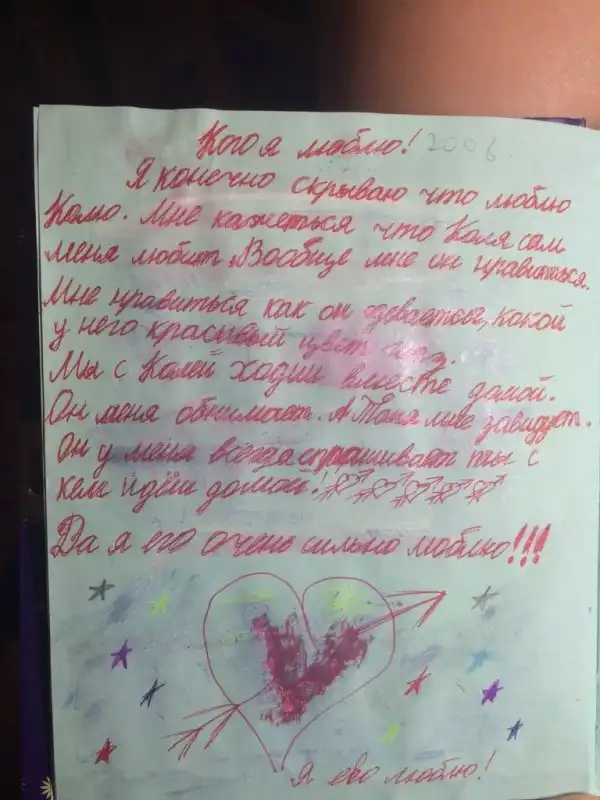 Кого я люблю! 2006
Я конечно скрываю что люблю
Колю. Мне кажеться что Коля сам
меня любит. Вообще мне он нравиться.
Мне нравиться как он одевается, какой
у него красивый цвет глаз.
Мы с Колей ходим вместе домой.
Он меня обнимает. А Таня мне завидует.
Он у меня всегда спрашивает ты с
кем идёш домой!
Да я его очень сильно люблю!!!
Я ево люблю!